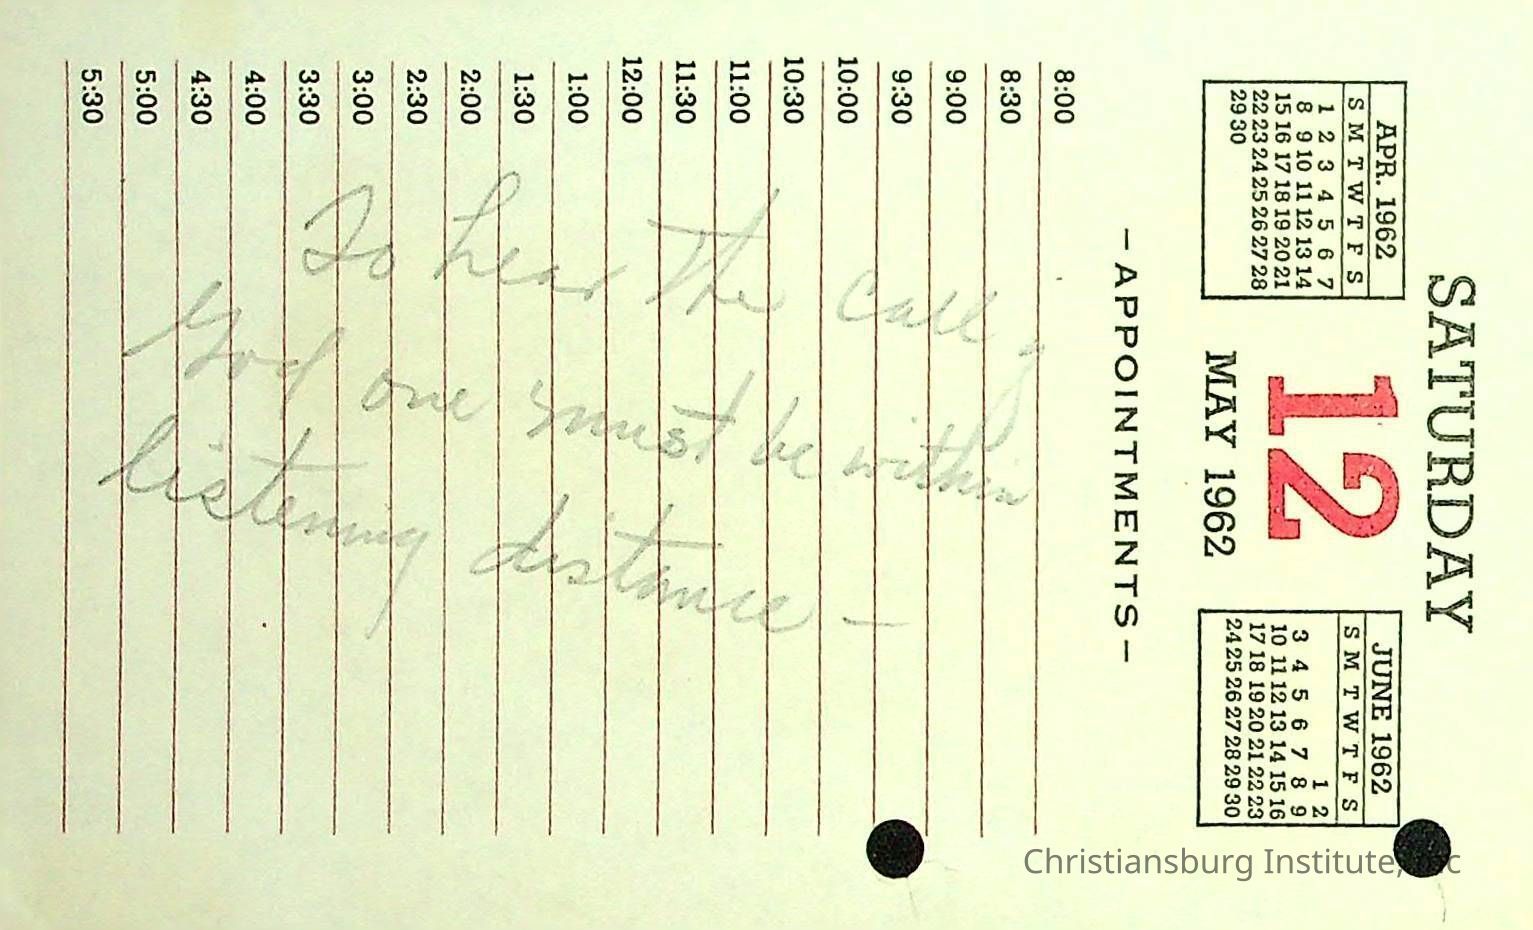 SATURDAY
12
MAY 1962
APR. 1962
S M T W T F S
1 2 3 4 5 6 7
8 9 10 11 12 13 14
15 16 17 18 19 20 21
22 23 24 25 26 27 28
29 30
JUNE 1962
S M T W T F S
1 2
3 4 5 6 7 8 9
10 11 12 13 14 15 16
17 18 19 20 21 22 23
24 25 26 27 28 29 30
—APPOINTMENTS—
8:00
8:30
9:00
9:30
10:00
10:30
11:00
11:30
12:00
1:00
1:30
2:00
2:30
3:00
3:30
4:00
4:30
5:00
5:30
To hear the call of
God one must be within
listening distance —
Christiansburg Institute, Inc